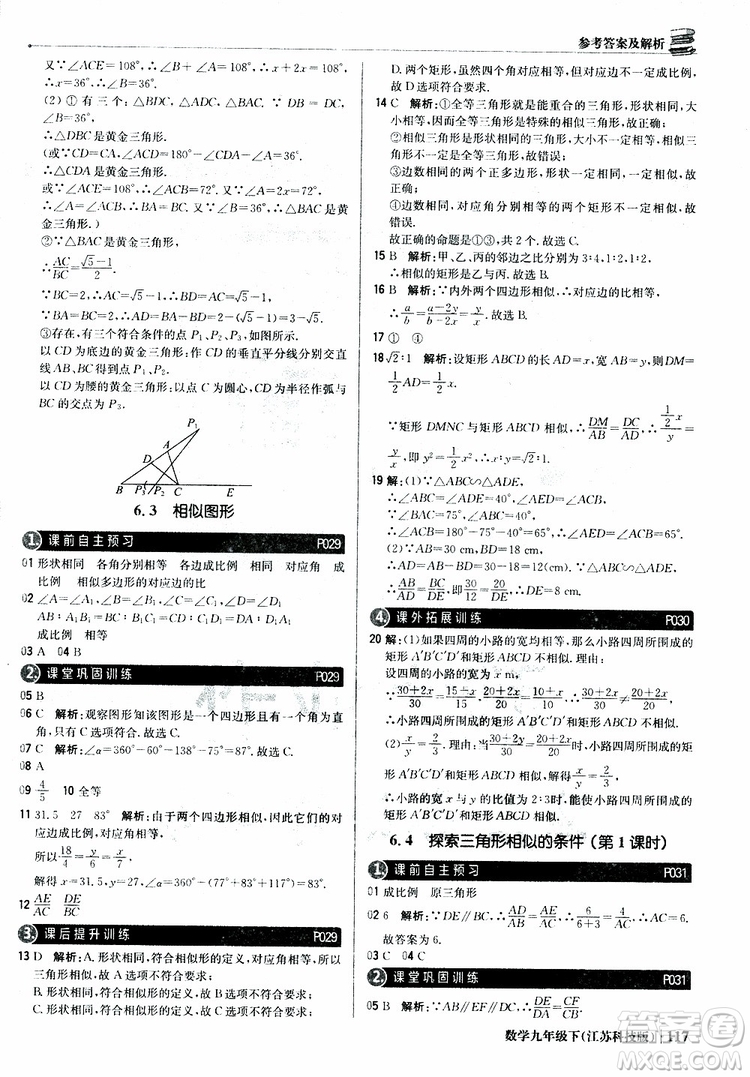 参考答案及解析
又∵∠ACE=108°，∴∠B+∠A=108°，∴x+2x=108°，
∴x=36°.
(2)①有三个：△BDC，△ADC，△BAC. ∵DB=DC，∠B=36°，
∴△DBC是黄金三角形.
(或∵CD=CA，∠ACD=180°−∠CDA−∠A=36°.
∴△CDA是黄金三角形.
或∵∠ACE=108°，∴∠ACB=72°. 又∵∠A=2x=72°，
∴∠A=∠ACB. ∴BA=BC. ∴△BAC是黄金三角形.)
②∵△BAC是黄金三角形，
∴AC/BC=(√5−1)/2.
∵BC=2，∴AC=√5−1.
∵BA=BC=2，BD=CD=AC=√5−1，
∴AD=BA−BD=2−(√5−1)=3−√5.
③存在，有三个符合条件的点P₁、P₂、P₃，如图所示.
以CD为底边的黄金三角形：作CD的垂直平分线分别交直
线AB、BC得到P₁、P₂.
以CD为腰的黄金三角形：以点C为圆心，CD为半径作弧与
BC的交点为P₃.
P₁
A
D
B P₃ P₂ C E
6.3 相似图形
1. 课前自主预习 P029
01 形状相同 各角分别相等 各边成比例 相同 对应角 成
比例 相似多边形的对应边的比
02 ∠A=∠A₁，∠B=∠B₁，∠C=∠C₁，∠D=∠D₁
AB∶A₁B₁=BC∶B₁C₁=CD∶C₁D₁=DA∶D₁A₁
成比例 相等
03 A 04 B
2. 课堂巩固训练 P029
05 B
06 C 解析：观察图形知该图形是一个四边形且有一个角为直
角，只有C符合. 故选C.
07 C 解析：∠α=360°−60°−138°−75°=87°. 故选C.
08 A
09 4/5 10 全等
11 31.5 27 83° 解析：由于两个四边形相似，因此它们的对
应边成比例，对应角相等，
所以18/4=y/6=x/7，
解得x=31.5，y=27，∠α=360°−(77°+83°+117°)=83°.
12 AE/AC DE/BC
3. 课后提升训练 P029
13 D 解析：A. 形状相同，符合相似形的定义，对应角相等，对
应边成比例，故A选项不符合要求；
B. 形状相同，符合相似形的定义，故B选项不符合要求；
C. 形状相同，符合相似形的定义，故C选项不符合要求；
D. 两个矩形，虽然四个角对应相等，但对应边不成比例，
故D选项符合要求.
14 C 解析：①全等三角形就是能重合的三角形，形状相同，大
小相等，故全等三角形是特殊的相似三角形，故正确；
②相似三角形是形状相同的三角形，大小不一定相同，故相似
三角形不一定是全等三角形，故错误；
③边数相同的两个正多边形，形状一定相同，故一定相似，
故正确；
④边数相同、对应角分别相等的两个多边形不一定相似，故
错误.
故正确的命题是①③，共2个. 故选C.
15 B 解析：甲、乙、丙的邻边之比分别为3∶4，1∶2，1∶2，
故相似的矩形是乙与丙. 故选B.
16 B 解析：∵内外两个四边形是相似图形，
∴a/b=(a−2y)/(b−2x)，∴a/b=y/x. 故选B.
17 ① ④
18 √2∶1 解析：设矩形ABCD的长AD=x，宽AB=y，则DM=
1/2AD=1/2x.
∵矩形DMNC与矩形ABCD相似，∴DM/AB=DC/AD，∴(1/2x)/y
=y/x，即y²=1/2x². ∴x∶y=√2∶1.
19 解：(1)∵△ABC∽△ADE，
∴∠ABC=∠ADE，∠AED=∠C.
∵∠ABC=75°，∠AED=60°，
∴∠ADE=75°，∠C=60°.
(2)∵AB=30 cm，BD=18 cm，
∴AD=AB−BD=30−18=12(cm).
∴AB/AD=BC/DE，即30/12=20/DE，∴DE=8 cm.
4. 课外拓展训练 P030
20 解：(1)如果四周的小路的宽均相等，那么小路四周所围成的
矩形A′B′C′D′和矩形ABCD不相似. 理由：
设四周的小路的宽度为x m，
∵(30+2x)/30=(15+x)/15，(20+2x)/20=(10+x)/10，∴(30+2x)/30≠(20+2x)/20.
∴小路四周所围成的矩形A′B′C′D′和矩形ABCD不相似.
(2)∵当x/y=20/30=2/3时，(30+2y)/30=(20+2x)/20，∴小路四周所围成的矩形
A′B′C′D′和矩形ABCD相似，
∴小路的宽度x与y的比值为2∶3时，小路四周所围成的矩
形A′B′C′D′和矩形ABCD相似.
6.4 探索三角形相似的条件(第1课时)
1. 课前自主预习 P031
01 成比例 原三角形
02 6 解析：∵DE∥BC，∴AD/AB=AE/AC，∴6/(6+3)=4/AC，∴AC=6.
故答案为6.
03 C 04 C
2. 课堂巩固训练 P031
05 B 解析：∵AB∥EF∥DC，∴DE/DA=CF/CB.
数学九年级下(江苏科技版) 117